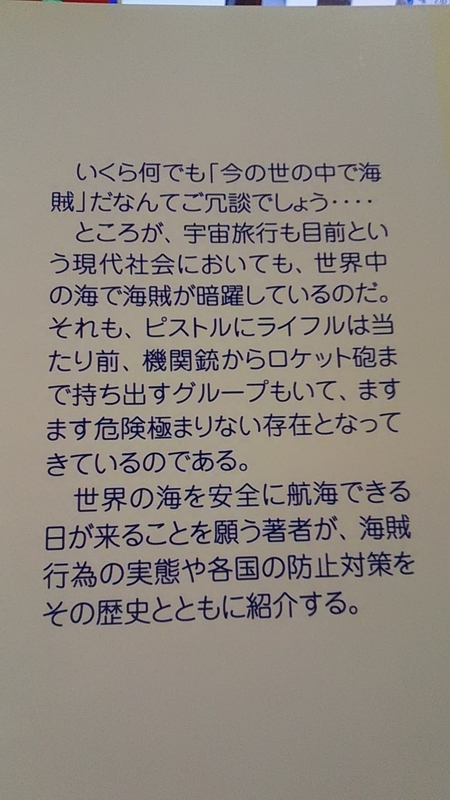 いくら何でも「今の世の中で海
賊」だなんてご冗談でしょう‥‥
ところが、宇宙旅行も目前とい
う現代社会においても、世界中
の海で海賊が暗躍しているのだ。
それも、ピストルにライフルは当
たり前、機関銃からロケット砲ま
で持ち出すグループもいて、ます
ます危険極まりない存在となって
きているのである。
世界の海を安全に航海できる
日が来ることを願う著者が、海賊
行為の実態や各国の防止対策を
その歴史とともに紹介する。